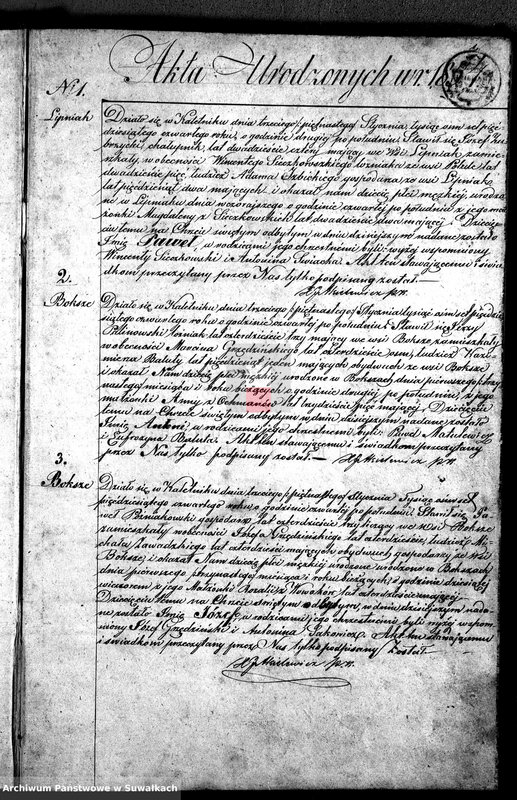 Akta Urodzonych w r. 18
No 1.
Lipniak
Działo się w Kaletniku dnia trzeciego/piętnastego Stycznia tysiąc ośmset pięć
dziesiątego czwartego roku, o godzinie drugiej po południu. Stawił się Józef
chałupnik, lat dwadzieścia cztery mający we Wsi Lipniak zamie
szkały, w obecności Wincentego Sieczkowskiego ze wsi lat
dwadzieścia pięć, tudzież Adama gospodarza ze wsi Lipniak
lat pięćdziesiąt dwa mających i okazał nam dziecię płci męzkiej, urodzo
ne w Lipniaku dnia wczorajszego o godzinie czwartej po południu z jego mał
żonki Magdaleny z Sieczkowskich lat dwadzieścia dwa mającej. Dziecię
ciu temu na Chrzcie świętym odbytym w dniu dzisiejszym nadane zostało
Imię Paweł, a rodzicami jego chrzestnemi byli wyżej wspomniony
Wincenty Sieczkowski i Antonina Akt ten stawającemu i świa
dkom przeczytany przez Nas tylko podpisany został.—
2.
Boksze
Działo się w Kaletniku dnia trzeciego/piętnastego Stycznia tysiąc ośmset pięćdzie
siątego czwartego roku o godzinie czwartej po południu. Stawił się Jerzy
lat czterdzieści trzy mający we wsi Boksze zamieszkały
w obecności Marcina Grzędzińskiego lat czterdzieści ośm, tudzież Kazi
mierza Baluty lat pięćdziesiąt jeden mających obydwóch ze wsi Boksze
i okazał Nam dziecię płci męzkiej urodzone w Bokszach dnia pierwszego/trzy
nastego miesiąca i roku bieżących o godzinie drugiej po południu, z jego
małżonki Anny z Ochmanów lat trzydzieści pięć mającej. Dziecięciu
temu na Chrzcie świętym odbytym w dniu dzisiejszym nadane zostało
Imię Antoni, a rodzicami jego chrzestnemi byli: Paweł Matulewicz
i Eufrozyna Baluta. Akt ten stawającemu i świadkom przeczytany
przez Nas tylko podpisany został.—
3.
Boksze
Działo się w Kaletniku dnia trzeciego/piętnastego Stycznia Tysiąc ośmset
pięćdziesiątego czwartego roku o godzinie czwartej po południu. Stawił się Pa
weł Pieniakowski gospodarz lat czterdzieści trzy liczący we Wsi Boksze
zamieszkały w obecności Józefa Grzędzińskiego lat czterdzieści, tudzież Mi
chała Zawadzkiego lat czterdzieści mających obydwóch gospodarzy ze Wsi
Boksze, i okazał Nam dziecię płci męzkiej urodzone w Bokszach
dnia pierwszego/trzynastego miesiąca i roku bieżących, o godzinie dziesiątej
wieczorem z jego Małżonki Rozalii z Nowaków lat czterdzieści mającej
Dziecięciu temu na Chrzcie świętym odbytym w dniu dzisiejszym nada
ne zostało Imię Józef, a rodzicami jego chrzestnemi byli wyżej wspom
niony Józef Grzędziński i Antonina Akt ten stawającemu
i świadkom przeczytany przez Nas tylko podpisany Został.
Archiwum Państwowe w Suwałkach